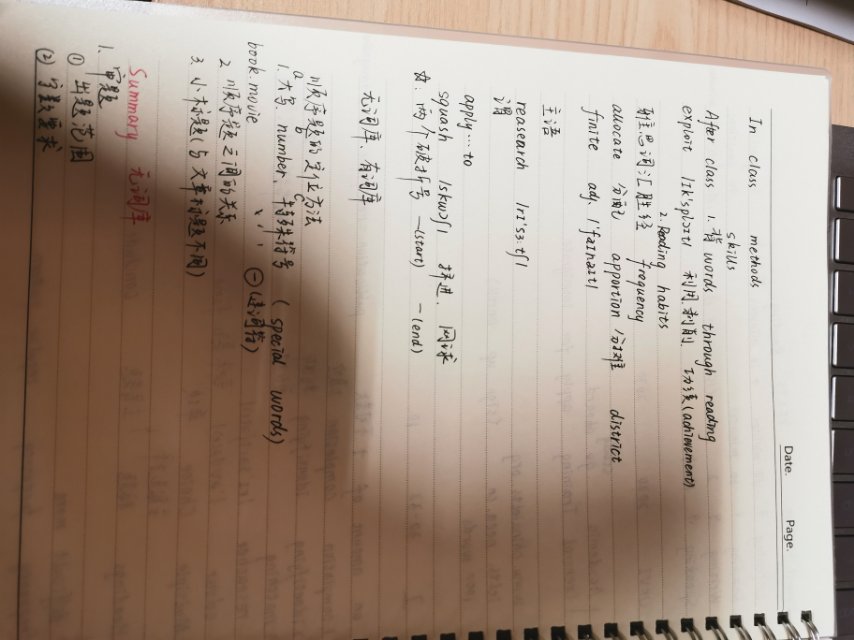 Date. Page.
In class methods
skills
After class 1. 背 words through reading
exploit /ɪk'splɔɪt/ 利用 剥削 功绩(achievement)
2. Reading habits
雅思词汇胜经 frequency
allocate 分配 apportion 分摊 district
finite adj. /'faɪnaɪt/
主语
reasearch /rɪ'sɜ:tʃ/
谓
apply...to
squash /skwɔʃ/ 挤进. 网球
女. 两个破折号 —(start) —(end)
无词库、有词库
顺序题的定位方法
1. 大写. number. 特殊符号 ( special words)
book movie
(连词符)
2 顺序题之间的关系
3. 小标题(与文章标题不同)
Summary 无词库
1. 审题
① 出题范围
② 字数要求